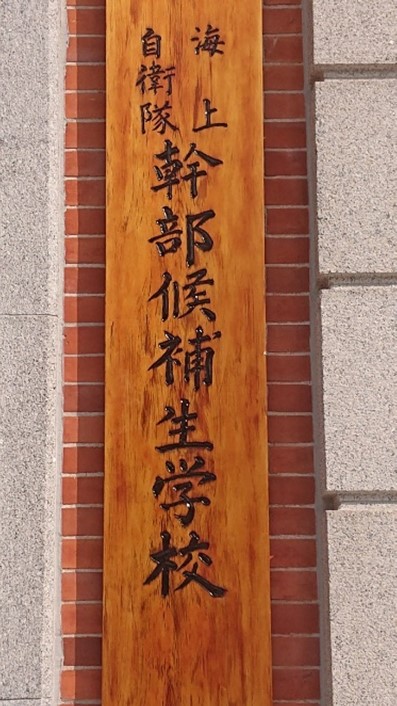 海上
自衛隊
幹部候補生学校